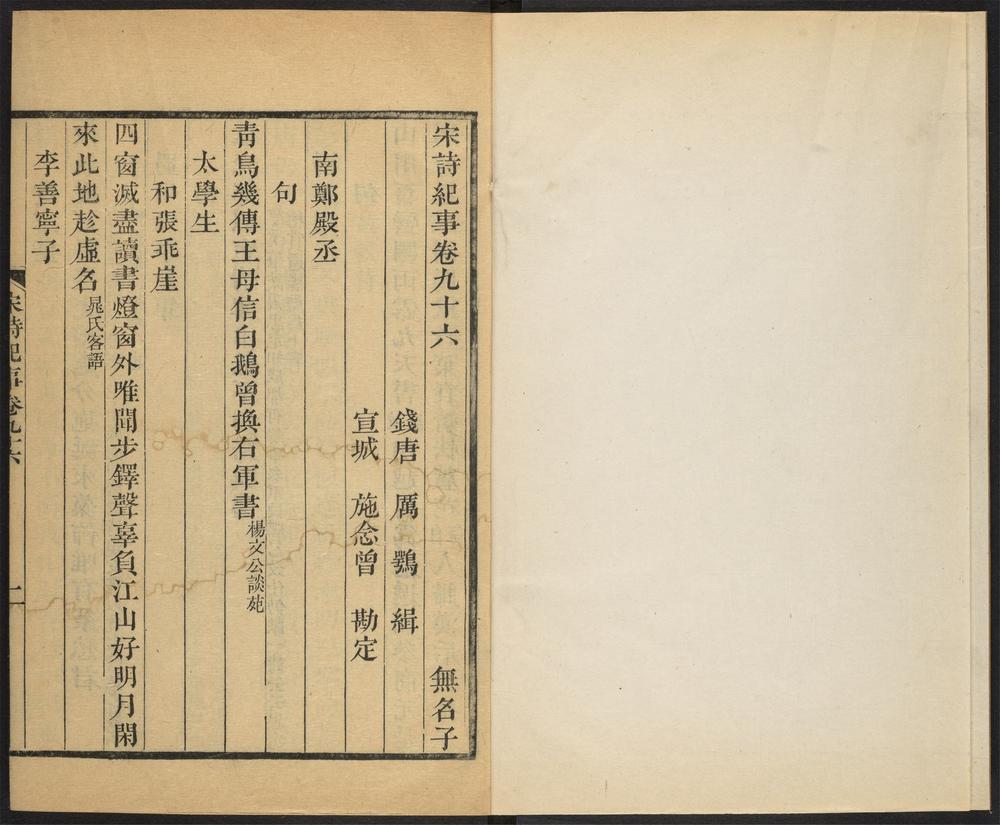 宋詩紀事卷九十六 無名子
錢唐 厲鶚 緝
宣城 施念曾 勘定
南鄭殿丞
句
靑鳥幾傳王母信白鵝曾換右軍書楊文公談苑
太學生
和張乖崖
四窗滅盡讀書燈窗外唯聞步鐸聲辜負江山好明月閑
來此地趁虛名晁氏客語
李善寧子
宋詩紀事卷九十六